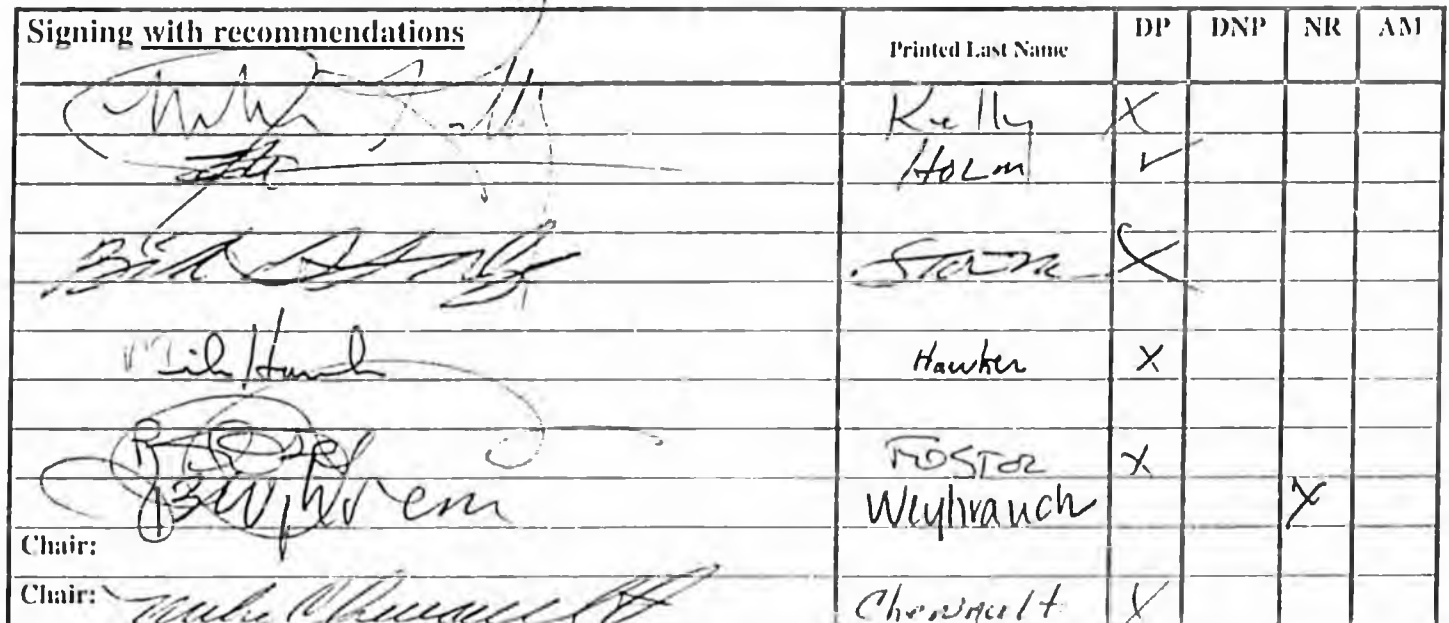 Signing with recommendations Printed Last Name DP DNP NR AM
Kelly X
Holm ✓
X
Mike Hawker X
Foster X
Weyhrauch X
Chair:
Chair: Mike Chenault Chenault X